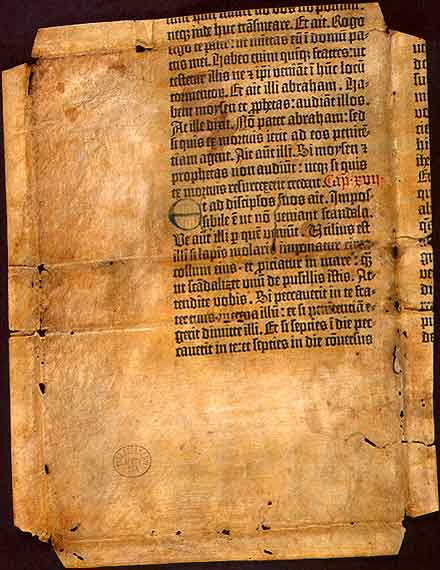 nō possint:
neqȝ inde huc trāsmeare. Et ait. Rogo
ergo te pater: ut mittas eū ī domū pa-
tris mei. Habeo enim quinqȝ fratres: ut
testetur illis ne ⁊ ip̄i veniāt ī hūc locū
tormentorū. Et ait illi abraham. Ha-
bent moysen et ꝓphetas: audiāt illos.
At ille dixit. Nō pater abraham: sed
si quis ex mortuis ierit ad eos penitē-
tiam agent. Ait autē illi. Si moysen ⁊
prophetas non audiunt: neqȝ si quis
ex mortuis resurrexerit credent. Cap. xvii
Et ad discip̄los suos ait. Impos-
sibile ē ut nō veniant scandala.
Ve autē illi ꝑ quē veniūt. Utilius est
illi si lapis molaris imponatur circa
collum eius et ꝓiciatur in mare: qȝ
ut scādalizet unū de pusillis istis. At-
tendite vobis. Si peccaverit in te fra-
ter tuus increpa illū: et si penitentiā e-
gerit dimitte illi. Et si septies ī die pec-
caverit in te: et septies in die cōversus